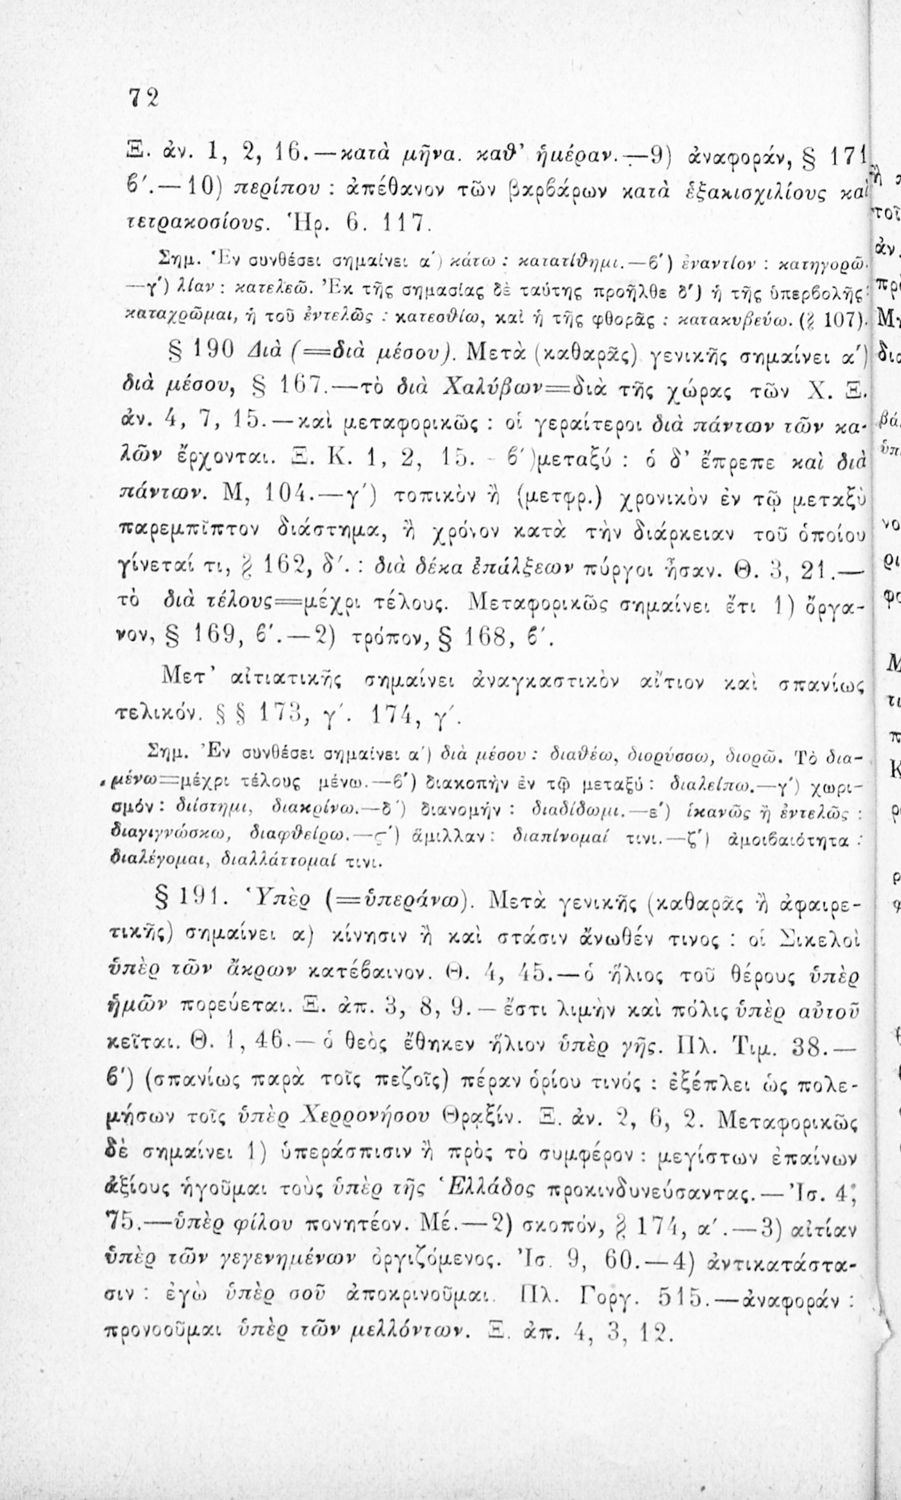 72
Ξ. ἀν. 1, 2, 16.—κατὰ μῆνα. καθ’ ἡμέραν.—9) ἀναφοράν, § 171
β΄.—10) περίπου : ἀπέθανον τῶν βαρβάρων κατὰ ἑξακισχιλίους καὶ
τετρακοσίους. Ἡρ. 6. 117.
Σημ. Ἐν συνθέσει σημαίνει α΄) κάτω : κατατίθημι.—β΄) ἐναντίον : κατηγορῶ.
—γ΄) λίαν : κατελεῶ. Ἐκ τῆς σημασίας δὲ ταύτης προῆλθε δ΄) ἡ τῆς ὑπερβολῆς :
καταχρῶμαι, ἡ τοῦ ἐντελῶς : κατεσθίω, καὶ ἡ τῆς φθορᾶς : κατακυβεύω. (§ 107).
§ 190 Διὰ (=διὰ μέσου). Μετὰ (καθαρᾶς) γενικῆς σημαίνει α΄)
διὰ μέσου, § 167.—τὸ διὰ Χαλύβων=διὰ τῆς χώρας τῶν Χ. Ξ.
ἀν. 4, 7, 15.—καὶ μεταφορικῶς : οἱ γεραίτεροι διὰ πάντων τῶν κα-
λῶν ἔρχονται. Ξ. Κ. 1, 2, 15. - β΄)μεταξύ : ὁ δ’ ἔπρεπε καὶ διὰ
πάντων. Μ, 104.—γ΄) τοπικὸν ἢ (μετφρ.) χρονικὸν ἐν τῷ μεταξὺ
παρεμπῖπτον διάστημα, ἢ χρόνον κατὰ τὴν διάρκειαν τοῦ ὁποίου
γίνεταί τι, § 162, δ΄. : διὰ δέκα ἐπάλξεων πύργοι ἦσαν. Θ. 3, 21.—
τὸ διὰ τέλους=μέχρι τέλους. Μεταφορικῶς σημαίνει ἔτι 1) ὄργα-
νον, § 169, β΄.—2) τρόπον, § 168, β΄.
Μετ’ αἰτιατικῆς σημαίνει ἀναγκαστικὸν αἴτιον καὶ σπανίως
τελικόν. § § 173, γ΄. 174, γ΄.
Σημ. Ἐν συνθέσει σημαίνει α΄) διὰ μέσου : διαθέω, διορύσσω, διορῶ. Τὸ δια-
μένω=μέχρι τέλους μένω.—β΄) διακοπὴν ἐν τῷ μεταξύ : διαλείπω.—γ΄) χωρι-
σμόν : διίστημι, διακρίνω.—δ΄) διανομήν : διαδίδωμι.—ε΄) ἱκανῶς ἢ ἐντελῶς :
διαγιγνώσκω, διαφθείρω.—ϛ΄) ἅμιλλαν : διαπίνομαί τινι.—ζ΄) ἀμοιβαιότητα :
διαλέγομαι, διαλλάττομαί τινι.
§ 191. Ὑπὲρ (=ὑπεράνω). Μετὰ γενικῆς (καθαρᾶς ἢ ἀφαιρε-
τικῆς) σημαίνει α) κίνησιν ἢ καὶ στάσιν ἄνωθέν τινος : οἱ Σικελοὶ
ὑπὲρ τῶν ἄκρων κατέβαινον. Θ. 4, 45.—ὁ ἥλιος τοῦ θέρους ὑπὲρ
ἡμῶν πορεύεται. Ξ. ἀπ. 3, 8, 9.—ἔστι λιμὴν καὶ πόλις ὑπὲρ αὐτοῦ
κεῖται. Θ. 1, 46.—ὁ θεὸς ἔθηκεν ἥλιον ὑπὲρ γῆς. Πλ. Τιμ. 38.—
β΄) (σπανίως παρὰ τοῖς πεζοῖς) πέραν ὁρίου τινός : ἐξέπλει ὡς πολε-
μήσων τοῖς ὑπὲρ Χερρονήσου Θρᾳξίν. Ξ. ἀν. 2, 6, 2. Μεταφορικῶς
δὲ σημαίνει 1) ὑπεράσπισιν ἢ πρὸς τὸ συμφέρον : μεγίστων ἐπαίνων
ἀξίους ἡγοῦμαι τοὺς ὑπὲρ τῆς Ἑλλάδος προκινδυνεύσαντας.—Ἰσ. 4,
75.—ὑπὲρ φίλου πονητέον. Μέ.—2) σκοπόν, § 174, α΄.—3) αἰτίαν
ὑπὲρ τῶν γεγενημένων ὀργιζόμενος. Ἰσ. 9, 60.—4) ἀντικατάστα-
σιν : ἐγὼ ὑπὲρ σοῦ ἀποκρινοῦμαι. Πλ. Γοργ. 515.—ἀναφοράν :
προνοοῦμαι ὑπὲρ τῶν μελλόντων. Ξ. ἀπ. 4, 3, 12.